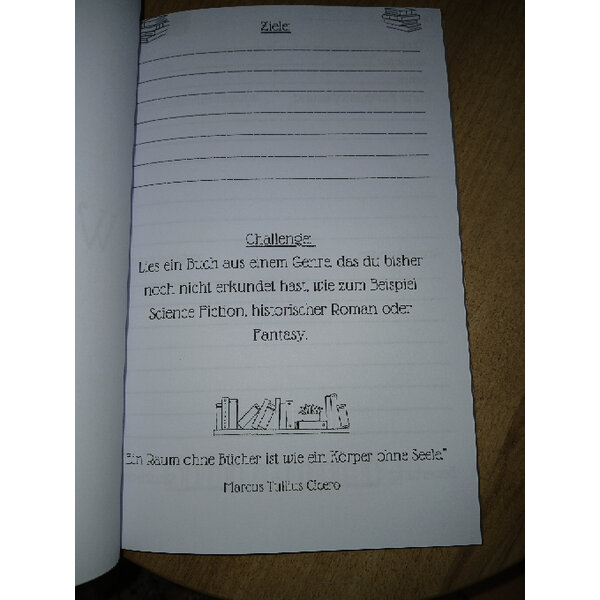 Ziele:
Challenge:
Lies ein Buch aus einem Genre, das du bisher
noch nicht erkundet hast, wie zum Beispiel
Science Fiction, historischer Roman oder
Fantasy.
"Ein Raum ohne Bücher ist wie ein Körper ohne Seele."
Marcus Tullius Cicero